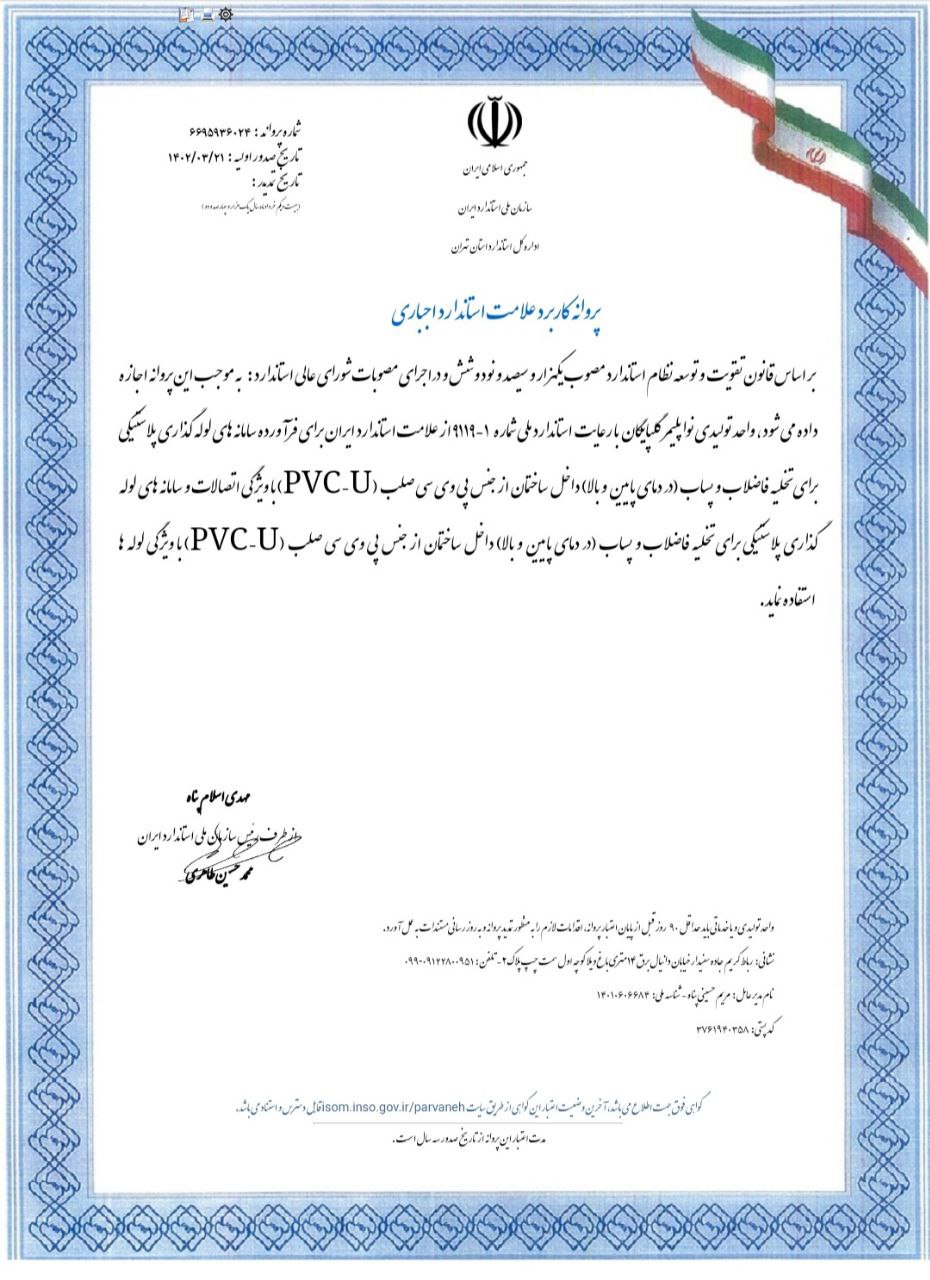 شماره پروانه : ۶۶۹۵۹۳۶۰۲۴
تاریخ صدور اولیه : ۱۴۰۲/۰۳/۲۱
تاریخ تمدید :
(بیست و یکم خرداد ماه سال یک هزار و چهارصد و دو)
جمهوری اسلامی ایران
سازمان ملی استاندارد ایران
اداره کل استاندارد استان تهران
پروانه کاربرد علامت استاندارد اجباری
بر اساس قانون تقویت و توسعه نظام استاندارد مصوب یکهزار و سیصد و نود و شش و در اجرای مصوبات شورای عالی استاندارد : به موجب این پروانه اجازه
داده می شود، واحد تولیدی نوا پلیمر گلپایگان با رعایت استاندارد ملی شماره ۱-۹۱۱۹ از علامت استاندارد ایران برای فرآورده سامانه های لوله گذاری پلاستیکی
برای تخلیه فاضلاب و پساب (در دمای پایین و بالا) داخل ساختمان از جنس پی وی سی صلب (PVC-U) با ویژگی اتصالات و سامانه های لوله
گذاری پلاستیکی برای تخلیه فاضلاب و پساب (در دمای پایین و بالا) داخل ساختمان از جنس پی وی سی صلب (PVC-U) با ویژگی لوله ها
استفاده نماید.
مهدی اسلام پناه
از طرف رئیس سازمان ملی استاندارد ایران
محمد حسین طاهری
واحد تولیدی و یا خدماتی باید حداقل ۹۰ روز قبل از پایان اعتبار پروانه، اقدامات لازم را به منظور تمدید پروانه و به روز رسانی مستندات به عمل آورد.
نشانی: رباط کریم جاده سفیدار خیابان دانیال برق ۱۴متری باغ ویلا کوچه اول سمت چپ پلاک ۲ - تلفن: ۰۹۹۰-۰۹۱۲۲۸۰۰۹۵۱
نام مدیرعامل: مریم حسینی پناه - شناسه ملی: ۱۴۰۱۰۶۰۶۶۸۴
کد پستی: ۳۷۶۱۹۴۰۳۵۸
گواهی فوق جهت اطلاع می باشد، آخرین وضعیت اعتبار این گواهی از طریق سایت isom.inso.gov.ir/parvaneh قابل دسترس و استناد می باشد.
مدت اعتبار این پروانه از تاریخ صدور سه سال است.